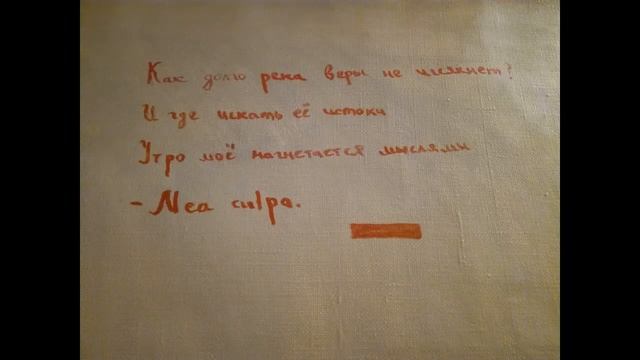 Как долго река веры не иссякнет?
И где искать её истоки
Утро моё нагнетается мыслями
- Mea culpa.